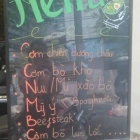 Menu
Cơm chiên dương châu
Cơm bò kho
Nui / Mì xào bò
Mì ý spaghetti
Beefsteak
Cơm bò lúc lắc